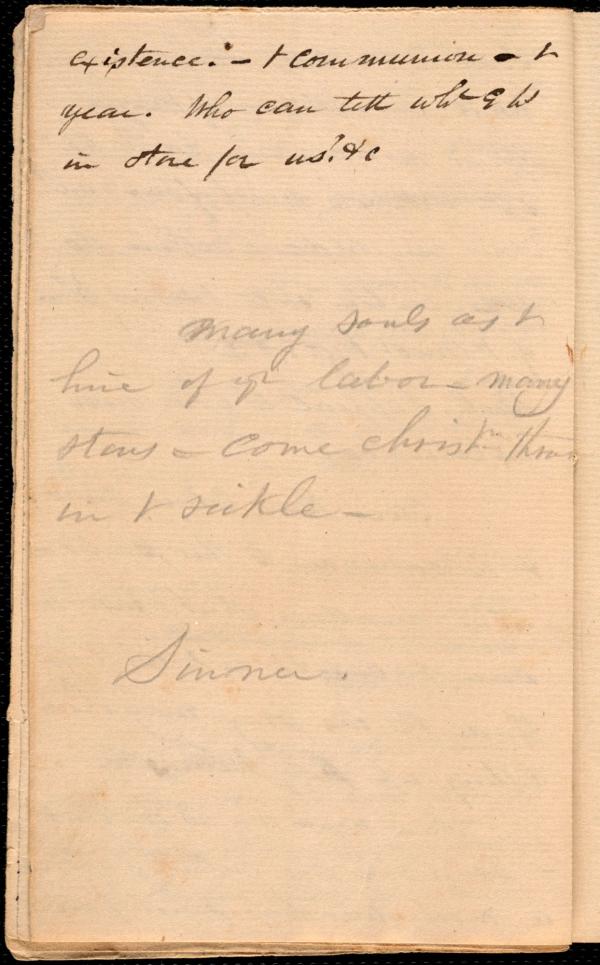 existence. - & communion - &
year. Who can tell wht G hs
in store for us! &c
many souls as &
hire of yr labor - many
stars - come christn thrust
in & sickle -
Sinner.